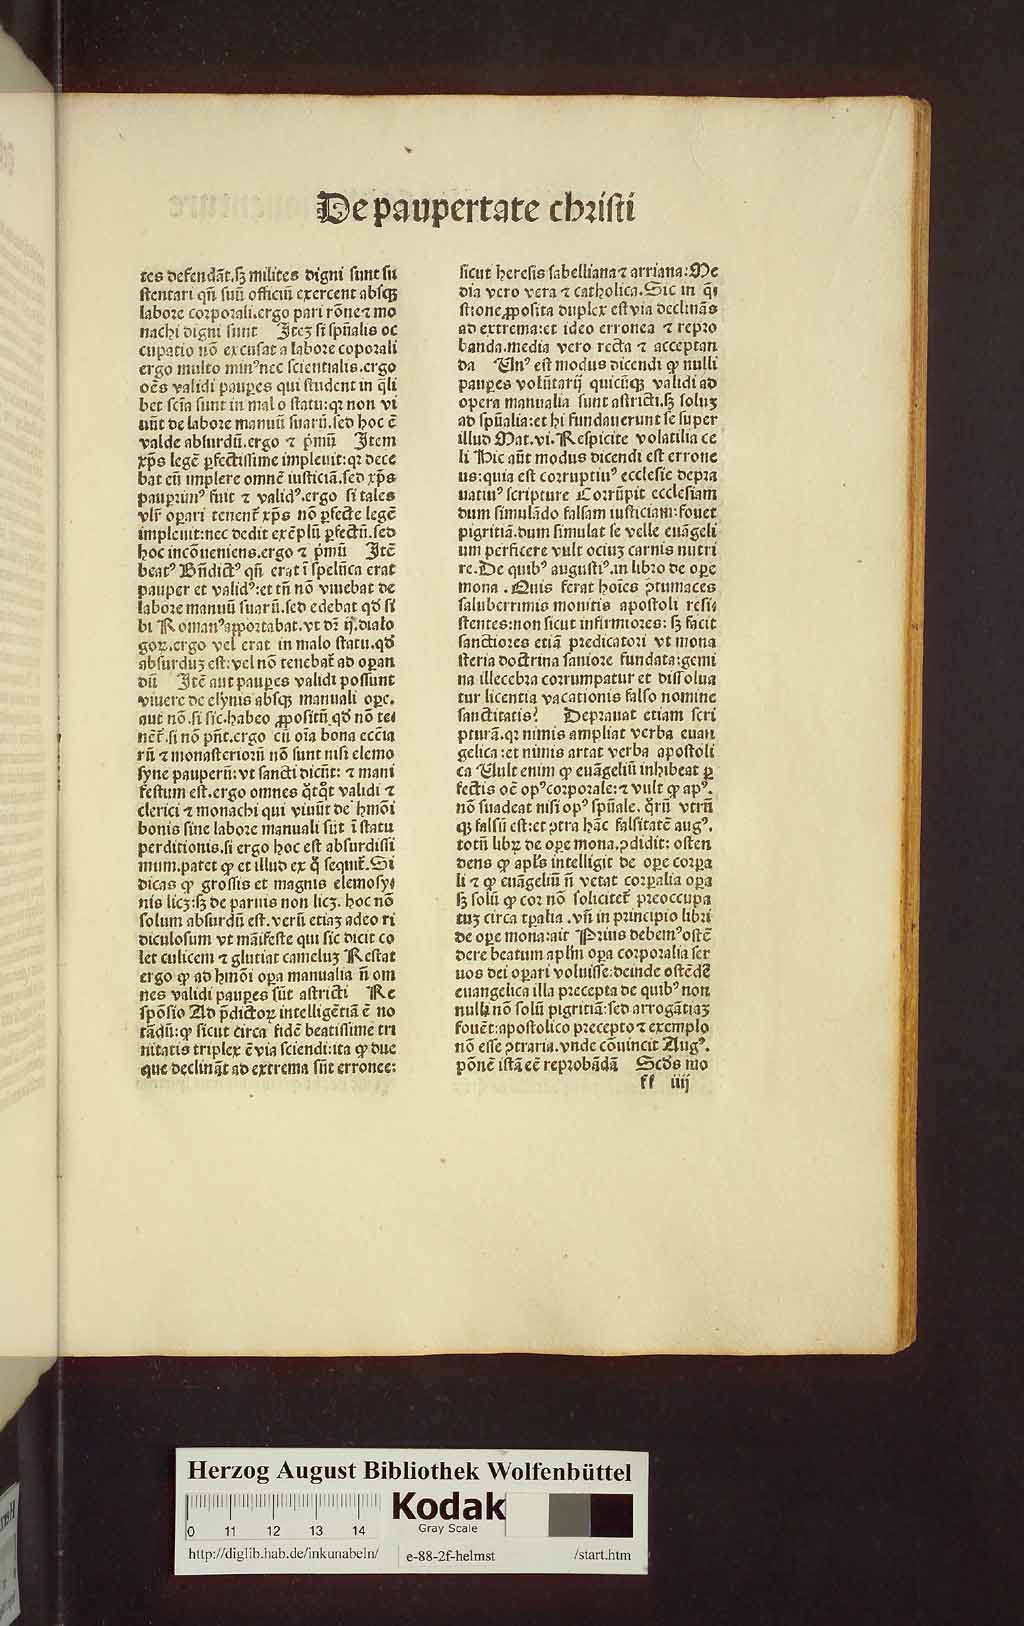 De paupertate christi
tes defendāt.sꝫ milites digni sunt su
stentari qn̄ suū officiū exercent absqꝫ
labore corporali.ergo pari rōne ⁊ mo
nachi digni sunt Itez si spūalis oc
cupatio nō excusat a labore coporali
ergo multo minꝰ nec scientialis.ergo
oēs validi paupes qui student in qͥli
bet scīa sunt in malo statu:qꝛ non vi
uūt de labore manuū suarū.sed hoc ē
valde absurdū.ergo ⁊ pͥmū Item
xp̄s legē ꝑfectissime impleuit:qꝛ dece
bat eū implere omnē iusticiā.sed xp̄s
pauprimꝰ fuit ⁊ validꝰ.ergo si tales
vlr̄ oꝑari tenent᷑ xp̄s nō ꝑfecte legē
impleuit:nec dedit exēplū ꝑfectū.sed
hoc incōueniens.ergo ⁊ pͥmū Itē
beatꝰ Bn̄dictꝰ qn̄ erat ī spelūca erat
pauper et validꝰ:et tn̄ nō viuebat de
labore manuū suarū.sed edebat qd̄ si
bi Romanꝰ apportabat.vt dꝛ ij.dialo
goꝝ.ergo vel erat in malo statu.qd̄
absurduꝫ est:vel nō tenebat᷑ ad oꝑan
dū Itē aut pauꝑes validi possunt
viuere de elynis absqꝫ manuali oꝑe.
aut nō.si sic.habeo ꝓpositū qd̄ nō te⸗
nēt᷑.si nō pn̄t.ergo cū oīa bona eccīa
rū ⁊ monasteriorū nō sunt nisi elemo
syne pauperū:vt sancti dicūt: ⁊ mani
festum est.ergo omnes qͥtqͥt validi ⁊
clerici ⁊ monachi qui viuūt de hmōi
bonis sine labore manuali sūt ī statu
perditionis.si ergo hoc est absurdissi
mum.patet ꝙ et illud ex qͦ sequit᷑.Si
dicas ꝙ grossis et magnis elemosy⸗
nis licꝫ:sꝫ de paruis non licꝫ. hoc nō
solum absurdū est.verū etiaꝫ adeo ri
diculosum vt māifeste qui sic dicit co
let culicem ⁊ glutiat cameluꝫ Restat
ergo ꝙ ad hmōi oꝑa manualia n̄ om
nes validi pauꝑes sūt astricti Re
spōsio Ad p̄dictoꝝ intelligētiā ē no
tādū:ꝙ sicut circa fidē beatissime tri
nitatis triplex ē via sciendi:ita ꝙ due
que declināt ad extrema sūt erronee:
sicut heresis sabelliana ⁊ arriana:Me
dia vero vera ⁊ catholica.Sic in q̄⸗
stione ꝓposita duplex est via declinās
ad extrema:et ideo erronea ⁊ repro
banda.media vero recta ⁊ acceptan
da Vnꝰ est modus dicendi ꝙ nulli
pauꝑes volūtarij quicūqꝫ validi ad
opera manualia sunt astricti.sꝫ soluꝫ
ad spūalia:et hi fundauerunt se super
illud Mat.vi.Respicite volatilia ce
li Hic aūt modus dicendi est errone
us:quia est corruptiuꝰ ecclesie depra
uatiuꝰ scripture Corrūpit ecclesiam
dum simulādo falsam iusticiam:fouet
pigritiā.dum simulat se velle euāgeli
um perficere vult ociuꝫ carnis nutri
re.De quibꝰ augustiꝰ.in libro de oꝑe
mona . Quis ferat hoīes ꝯtumaces
saluberrimis monitis apostoli resi⸗
stentes:non sicut infirmiores: sꝫ facit
sanctiores etiā predicatori vt mona
steria doctrina saniore fundata:gemi
na illecebra corrumpatur et dissolua
tur licentia vacationis falso nomine
sanctitatis? Deprauat etiam scri
pturā.qꝛ nimis ampliat verba euan
gelica:et nimis artat verba apostoli
ca Vult enim ꝙ euāgeliū inhibeat ꝑ
fectis oē opꝰ corporale:⁊ vult ꝙ apꝰ.
nō suadeat nisi opꝰ spūale. qͦrū vtrū
qꝫ falsū est:et ꝯtra hāc falsitatē augꝰ.
totū libꝝ de oꝑe mona.ꝯdidit: osten
dens ꝙ apl̄s intelligit de oꝑe corꝑa
li ⁊ ꝙ euāgeliū n̄ vetat corꝑalia oꝑa
sꝫ solū ꝙ cor nō solicitet᷑ preoccupa
tuꝫ circa tꝑalia .vn̄ in principio libri
de oꝑe mona:ait Prius debemꝰ ostē
dere beatum apl̄m oꝑa corporalia ser
uos dei oꝑari voluisse:deinde ostēdē
euangelica illa precepta de quibꝰ non
nulli nō solū pigritiā:sed arrogātiaꝫ
fouēt:apostolico precepto ⁊ exemplo
nō esse ꝯtraria.vnde cōuincit Augꝰ.
pōnē istā eē reprobādā Scd̄s mo
ff iiij
Herzog August Bibliothek Wolfenbüttel
Kodak
Gray Scale
0 11 12 13 14
http://diglib.hab.de/inkunabeln/ e-88-2f-helmst /start.htm